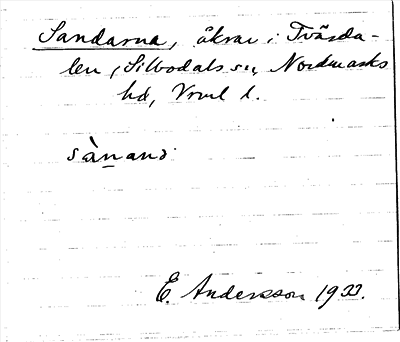 Sandarna, åkrar i Tvärda-
len, Silbodals sn, Nordmarks
hd, Vrml l.
sà̀nanə
E. Andersson 1933.